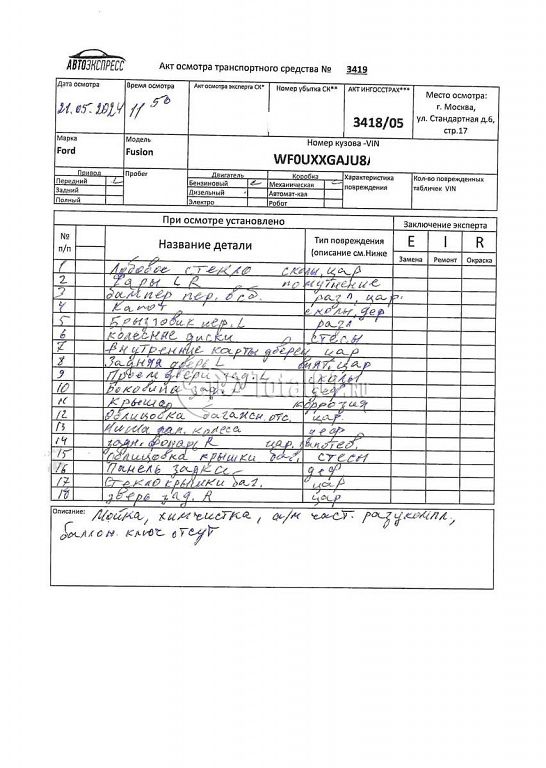 АВТОЭКСПРЕСС
Акт осмотра транспортного средства № 3419
Дата осмотра
21.05.2024
Время осмотра
11 50
Акт осмотра эксперта СК*
Номер убытка СК**
АКТ ИНГОССТРАХ***
3418/05
Место осмотра:
г. Москва,
ул. Стандартная д.6,
стр.17
Марка
Ford
Модель
Fusion
Номер кузова -VIN
WF0UXXGAJU8
Привод
Передний
Задний
Полный
Пробег
Двигатель
Бензиновый
Дизельный
Электро
Коробка
Механическая
Автомат-кая
Робот
Характеристика
повреждения
Кол-во поврежденных
табличек VIN
При осмотре установлено
Заключение эксперта
№
п/п
Название детали
Тип повреждения
(описание см.Ниже
E I R
Замена Ремонт Окраска
1 Лобовое стекло сколы, цар
2 Фары L R помутнение
3 Бампер пер. в сб. разл, цар.
4 Капот сколы, деф
5 Брызговик пер. L разл
6 Колесные диски стесы
7 Внутренние карты дверей цар
8 Задняя дверь L вмят, цар
9 Проем двери зад. L сколы
10 Боковина зад. L деф
11 Крыша коррозия
12 Облицовка багажн. отс. цар.
13 Ниша зап. колеса деф
14 задн. фонарь R цар. запотев.
15 облицовка крышки баг. стесы
16 Панель задка деф
17 Стекло крышки баг. цар
18 дверь зад. R цар
Описание: Мойка, химчистка, а/м част. разукомпл,
баллон. ключ отсут